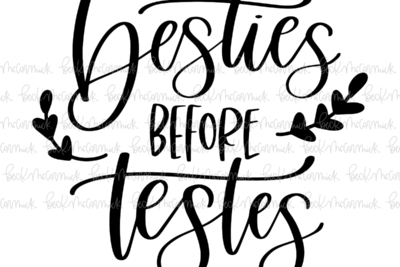 besties
BEFORE
testes